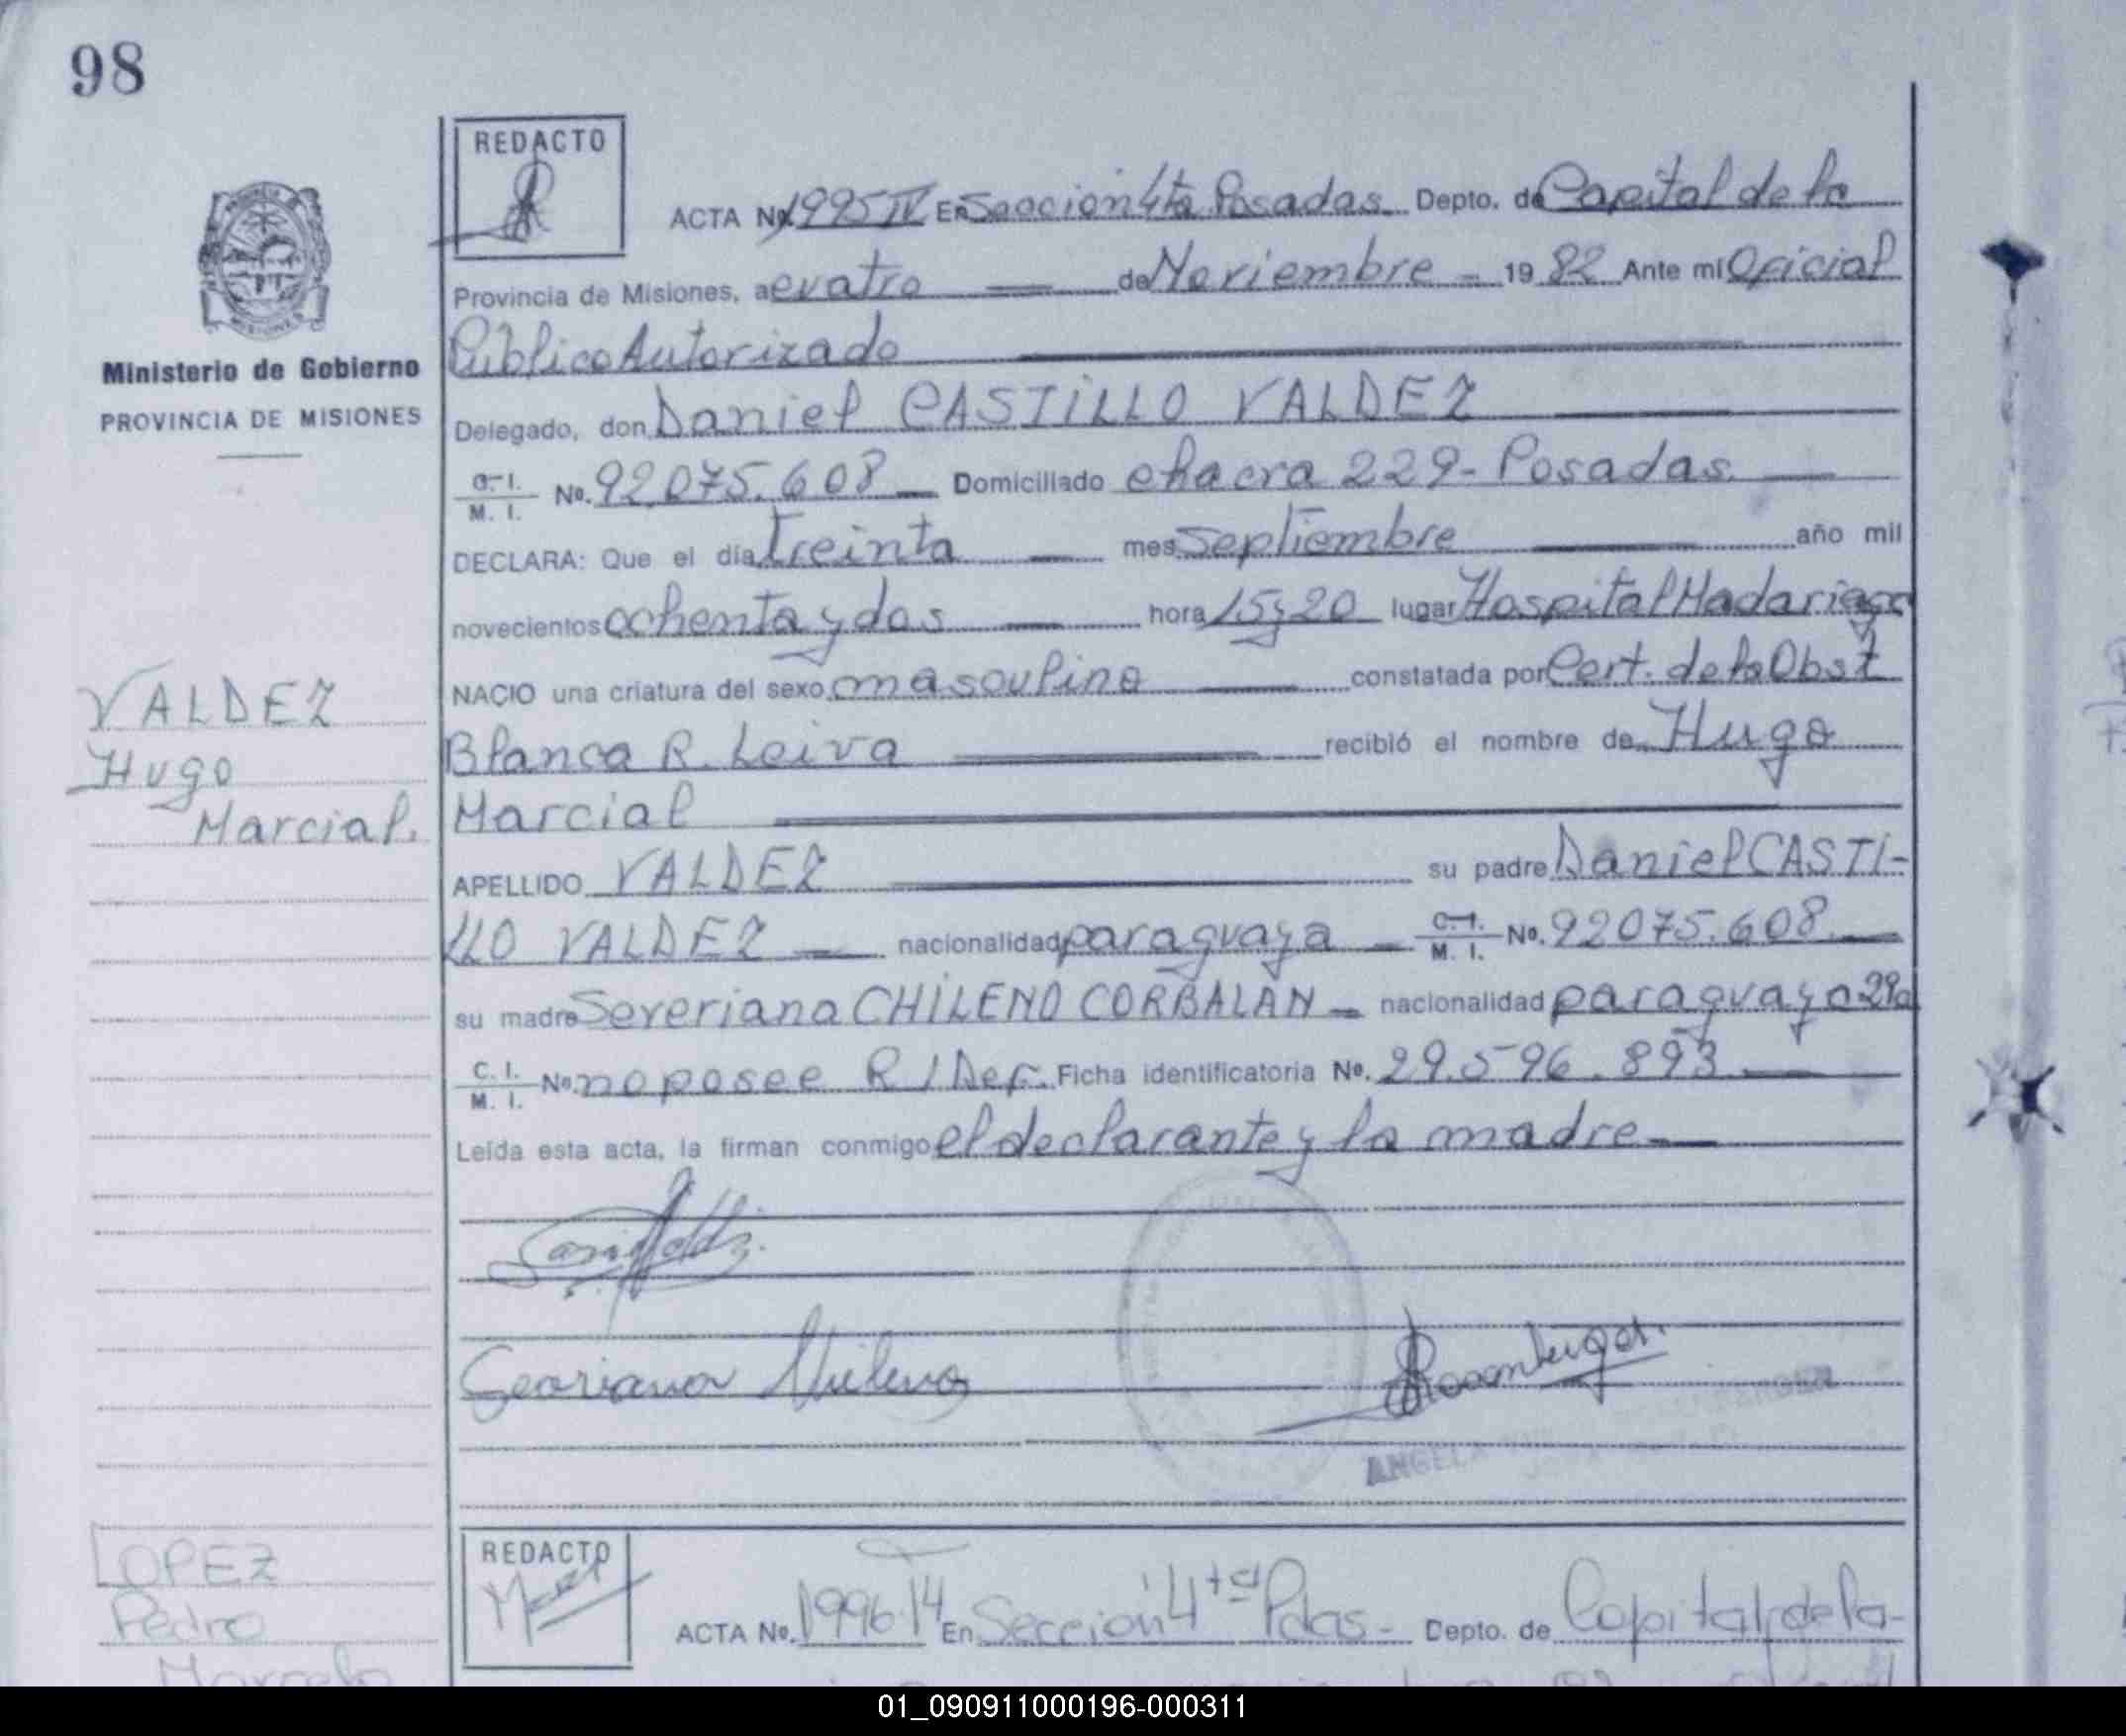 98
REDACTO
ACTA No. 1995 IV En Sección 4ta Posadas. Depto. de Capital de la
Provincia de Misiones, a cuatro de Noviembre 19 82 Ante mi Oficial
Ministerio de Gobierno
PROVINCIA DE MISIONES
Público Autorizado
Delegado, don Daniel CASTILLO VALDEZ
C. I. M. I. No. 92.075.608 Domiciliado chacra 229- Posadas.
DECLARA: Que el día treinta mes septiembre año mil
novecientos ochenta y dos hora 15 y 20 lugar Hospital Madariaga
NACIO una criatura del sexo masculino constatada por Cert. de la Obst
Blanca R. Leiva recibió el nombre de Hugo
Marcial
VALDEZ
Hugo
Marcial.
APELLIDO VALDEZ su padre Daniel CASTI-
LLO VALDEZ nacionalidad paraguaya C. I. M. I. No. 92075.608
su madre Severiana CHILENO CORBALAN nacionalidad paraguaya 29a
C. I. M. I. No. no posee R/Def. Ficha identificatoria No. 29.596.893
Leída esta acta, la firman conmigo el declarante y la madre
Seoriana Chileno
ANGELA
LOPEZ
Pedro
Marcelo
REDACTO
ACTA No. 1996 T4 En Sección 4ta Pdas- Depto. de Capital de la-
01_090911000196-000311